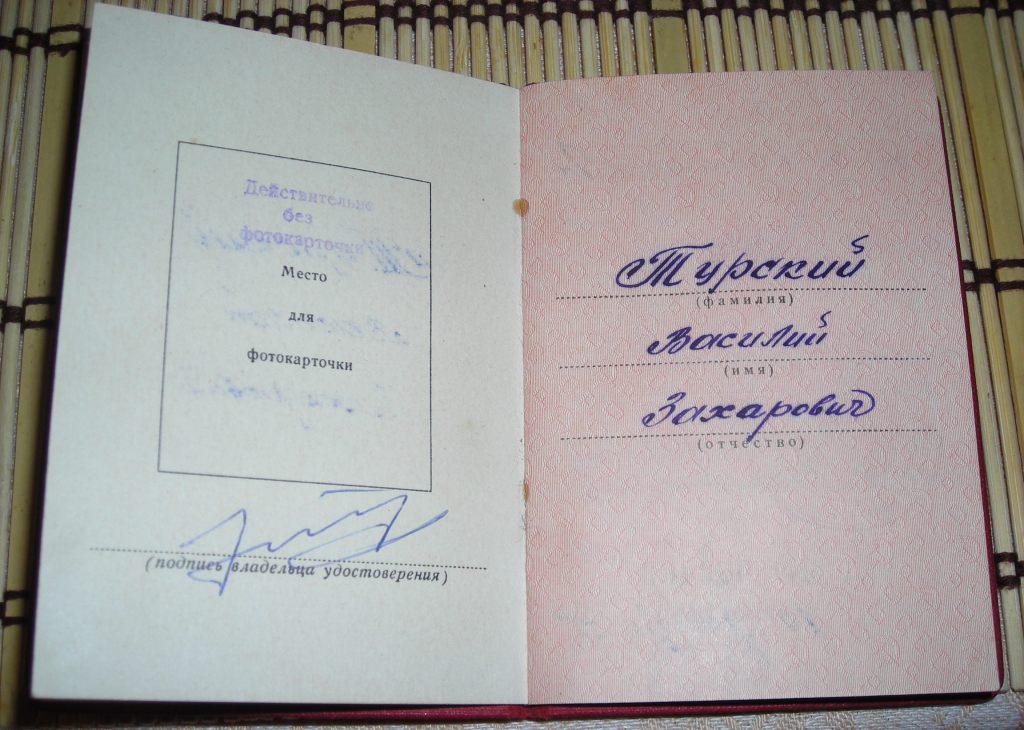 Действительно
без
фотокарточки
Место
для
фотокарточки
(подпись владельца удостоверения)
Турский
(фамилия)
Василий
(имя)
Захарович
(отчество)